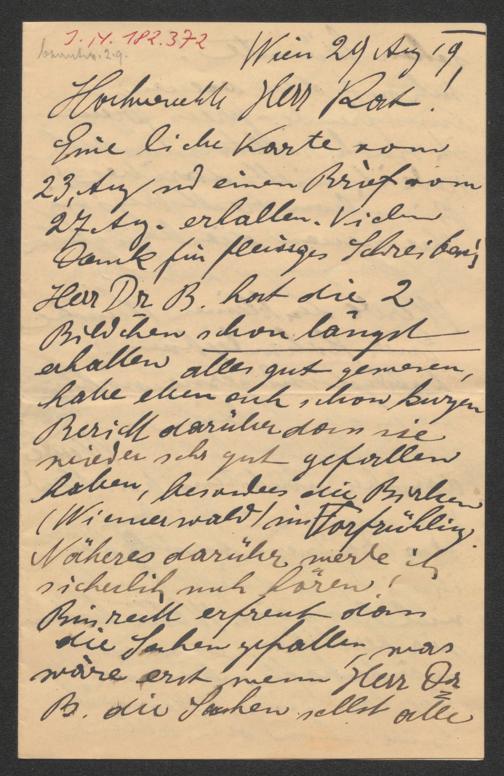 J.N. 182.372
Wien 29 Aug 19
Hochverehrter Herr Rat!
Eine liebe Karte vom
23. Aug und einen Brief vom
27. Aug. erhalten. Vielen
Dank für fleissiges Schreiben
Herr Dr B. hat die 2
Bildchen schon längst
erhalten alles gut gewesen,
habe eben auch schon kurzen
Bericht darüber dass sie
wieder sehr gut gefallen
haben, besonders die Birken
(Wienerwald) im Vorfrühling.
Näheres darüber werde ich
sicherlich noch hören!
Bin recht erfreut dass
die Sachen gefallen, was
wäre erst wenn Herr Dr
B. die Sachen selbst alle